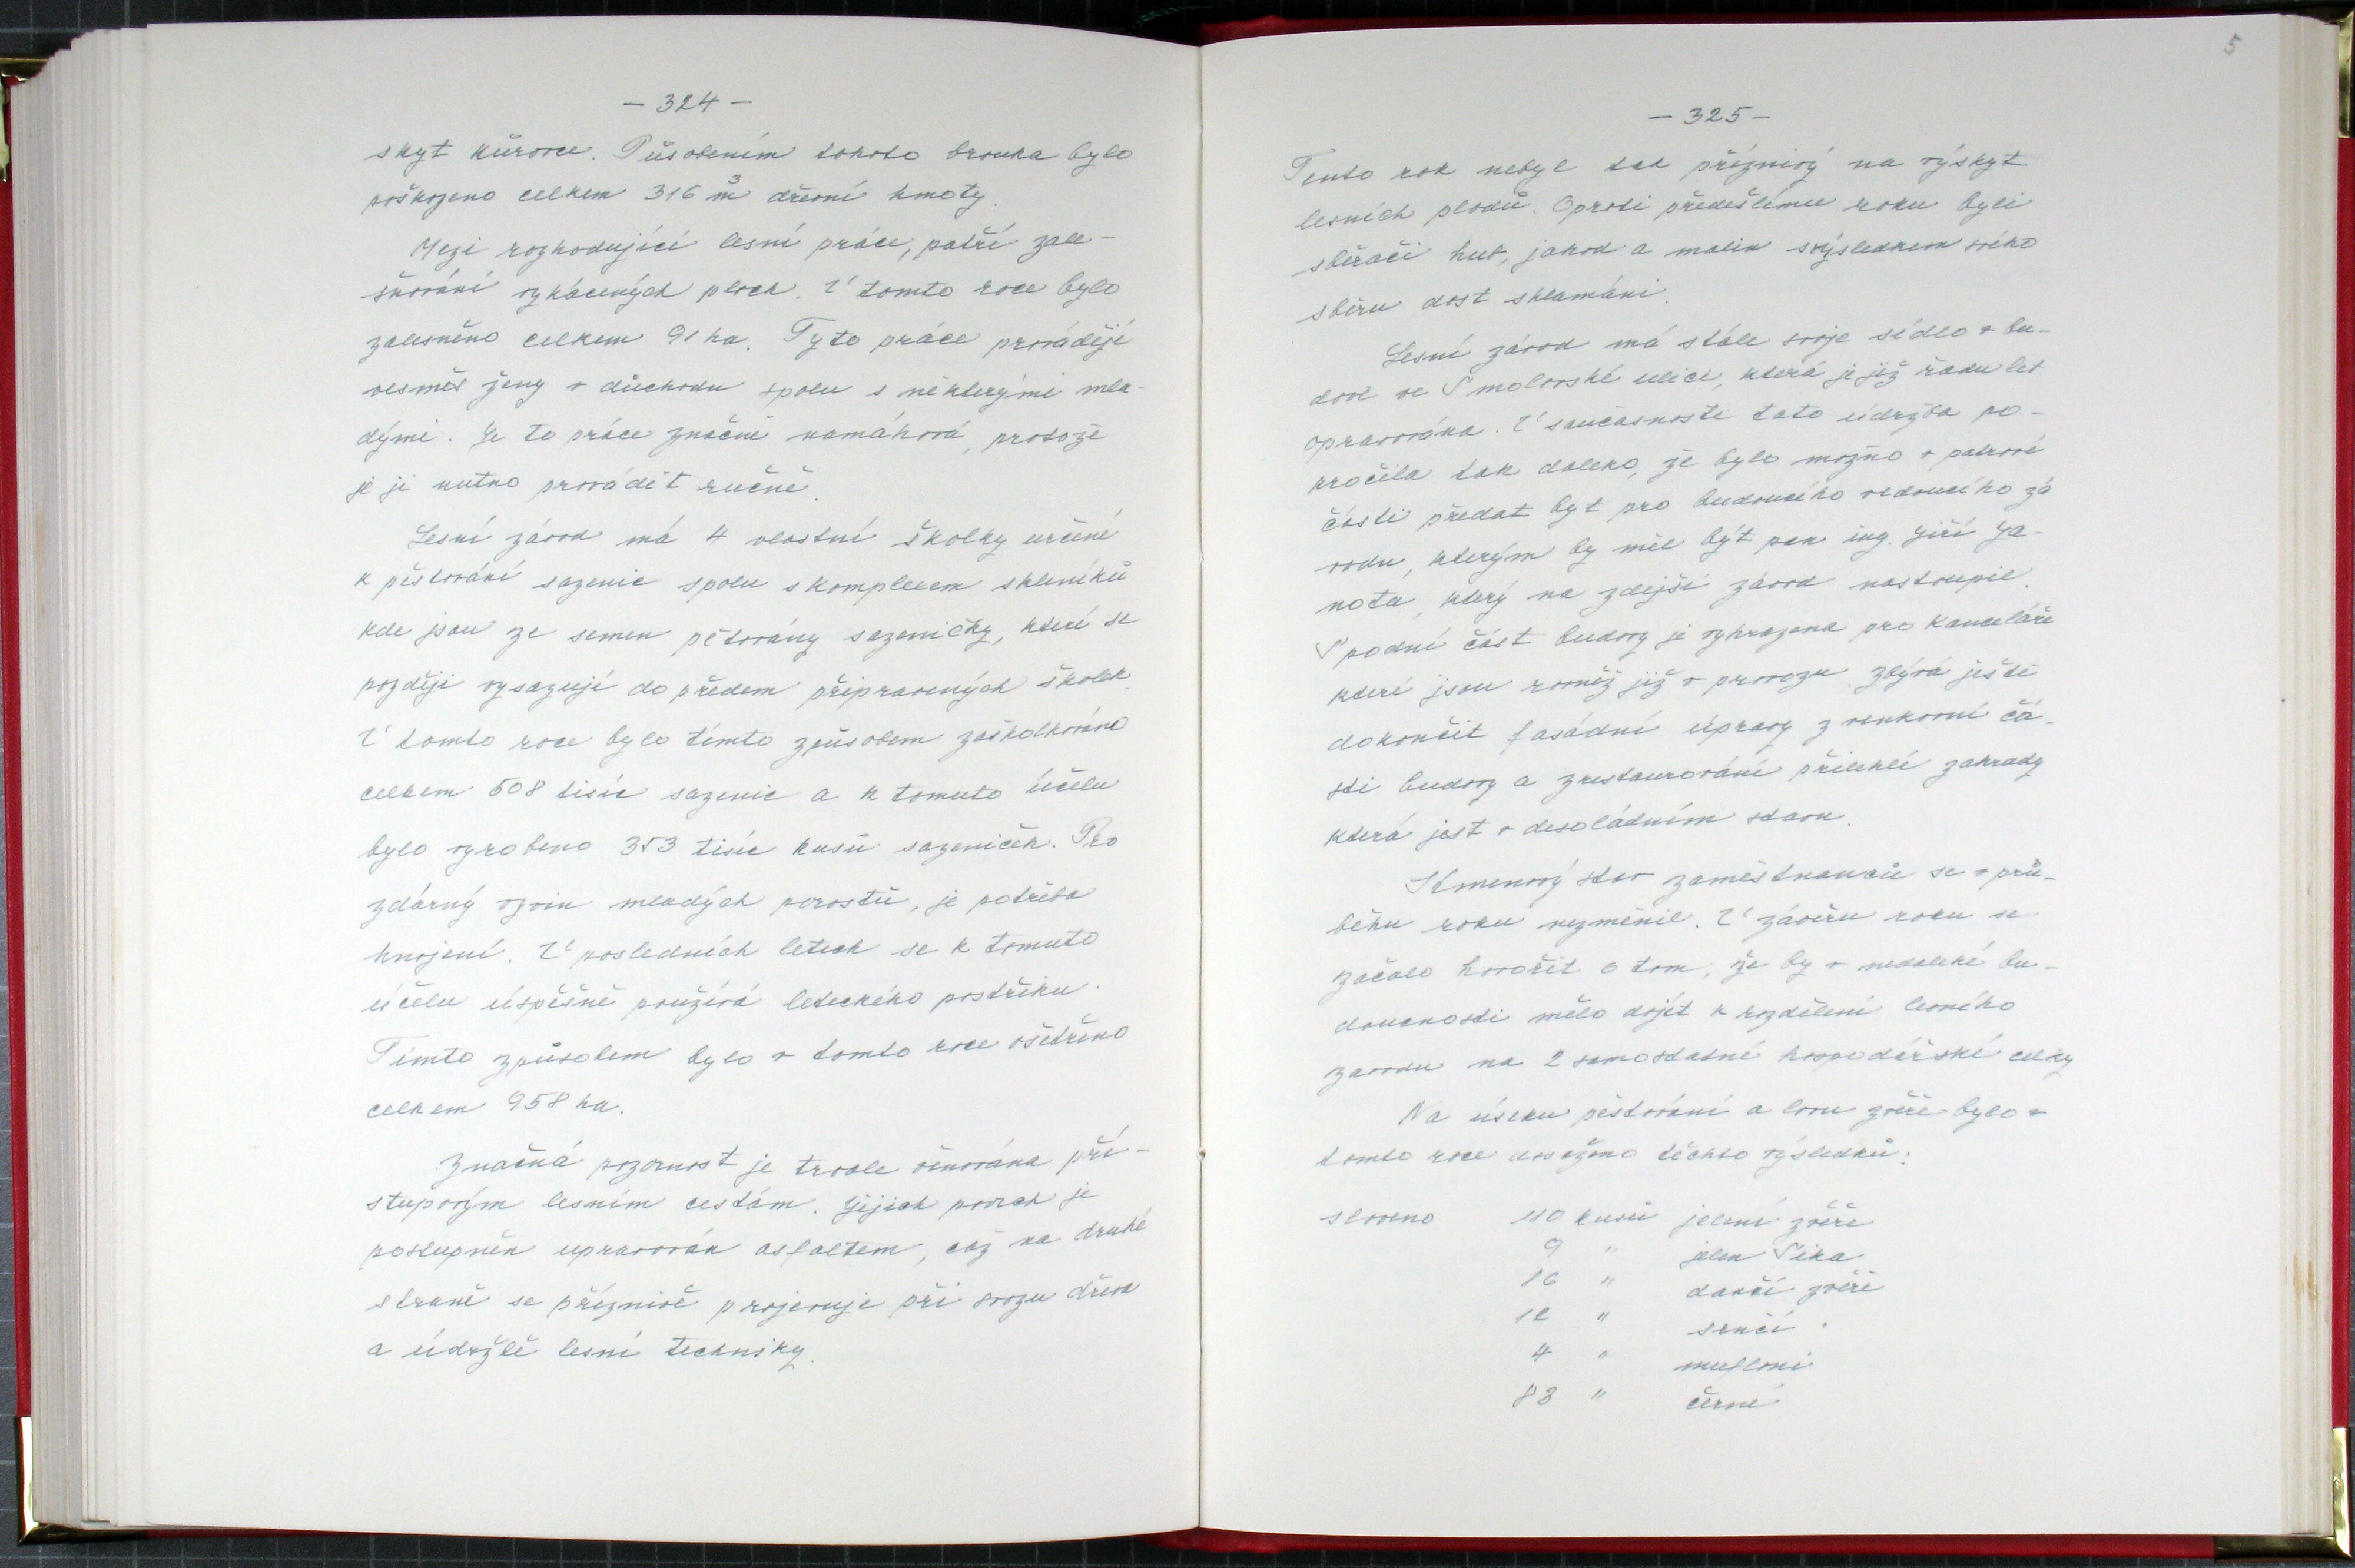 - 324 -
skyt kůrovce. Působením tohoto brouka bylo
poškozeno celkem 316 m³ dřevní hmoty.
Mezi rozhodující lesní práce, patří zale-
sňování vykácených ploch. V tomto roce bylo
zalesněno celkem 91 ha. Tyto práce provádějí
vesměs ženy v důchodu spolu s některými mla-
dými. Je to práce značně namáhavá, protože
je ji nutno provádět ručně.
Lesní závod má 4 vlastní školky určené
k pěstování sazenic spolu s komplexem skleníků
kde jsou ze semen pětovány sazeničky, které se
později vysazují do předem připravených školek.
V tomto roce bylo tímto způsobem zaškolkováno
celkem 508 tisíc sazenic a k tomuto účelu
bylo vyrobeno 353 tisíc kusů sazeniček. Pro
zdárný vývin mladých porostů, je potřeba
hnojení. V posledních letech se k tomuto
účelu úspěšně používá leteckého postřiku.
Tímto způsobem bylo v tomto roce ošetřeno
celkem 958 ha.
Značná pozornost je trvale věnována pří-
stupovým lesním cestám. Jejich povrch je
postupněn upravován asfaltem, což na druhé
straně se příznivě projevuje při svozu dřeva
a údržbě lesní techniky.
5
- 325 -
Tento rok nebyl tak příznivý na výskyt
lesních plodů. Oproti předešlému roku byli
sběrači hub, jahod a malin svýsledkem svého
sběru dost sklamáni.
Lesní závod má stále svoje sídlo v bu-
dově ve Smolovské ulici, která je již řadu let
opravována. V současnosti tato údržba po-
kročila tak daleko, že bylo možno v patrové
části předat byt pro budoucího vedoucího zá
vodu, kterým by měl být pan ing. Jiří Ja-
nota, který na zdejší závod nastoupil.
Spodní část budovy je vyhrazena pro kanceláře
které jsou rovněž již v provozu. Zbývá ještě
dokončit fasádní úpravy z venkovní čá-
sti budovy a zrestaurování přilehlé zahrady
která jest v desolátním stavu.
Kmenový stav zaměstnanců se v prů-
běhu roku nezměnil. V závěru roku se
začalo hovořit o tom, že by v nedaleké bu-
doucnosti mělo dojít k rozdělení lesního
zavodu na 2 samostatné hospodářské celky
Na úseku pěstování a lovu zvěře bylo v
tomto roce dosaženo těchto výsledků:
sloveno 110 kusů jelení zvěře
9 " jelen Sika
16 " dančí zvěře
12 " srnčí "
4 " mufloni
83 " černé